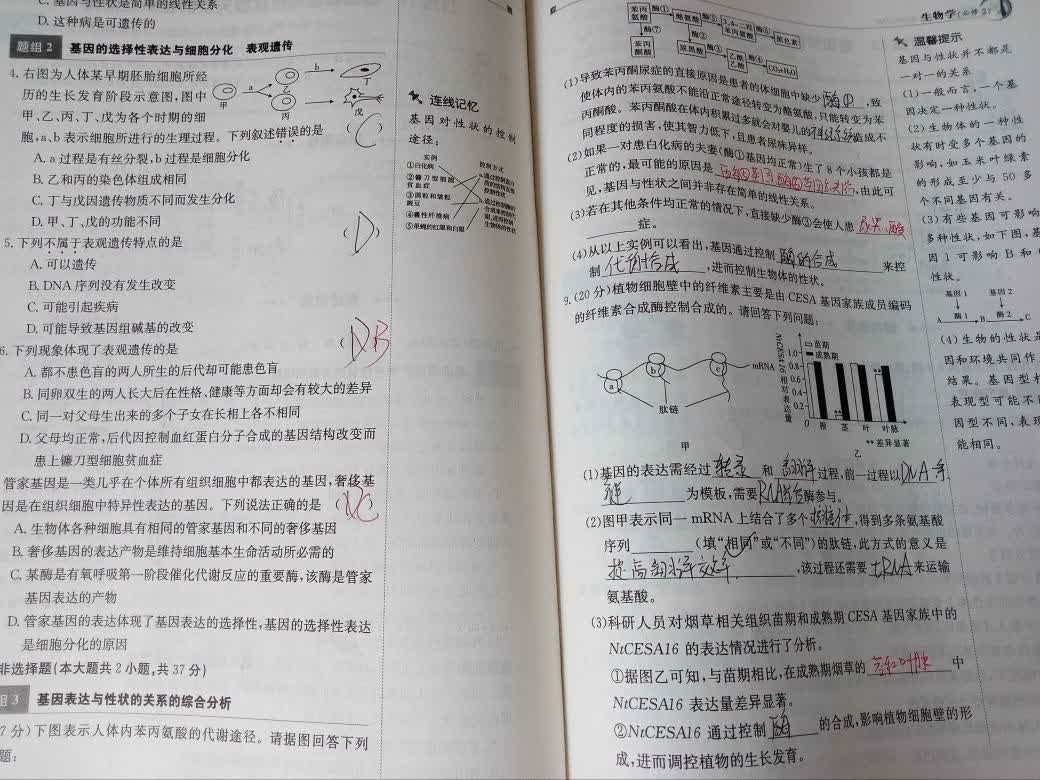 C. 基因与性状是简单的线性关系
D. 这种病是可遗传的
题组2 基因的选择性表达与细胞分化 表观遗传
4. 右图为人体某早期胚胎细胞所经
历的生长发育阶段示意图,图中
甲、乙、丙、丁、戊为各个时期的细
胞,a、b表示细胞所进行的生理过程。下列叙述错误的是 (C)
甲 a 乙 丙 b 丁 戊
A. a过程是有丝分裂,b过程是细胞分化
B. 乙和丙的染色体组成相同
C. 丁与戊因遗传物质不同而发生分化
D. 甲、丁、戊的功能不同
5. 下列不属于表观遗传特点的是 (D)
A. 可以遗传
B. DNA序列没有发生改变
C. 可能引起疾病
D. 可能导致基因组碱基的改变
6. 下列现象体现了表观遗传的是 ( B
A. 都不患色盲的两人所生的后代却可能患色盲
B. 同卵双生的两人长大后在性格、健康等方面却会有较大的差异
C. 同一对父母生出来的多个子女在长相上各不相同
D. 父母均正常,后代因控制血红蛋白分子合成的基因结构改变而
患上镰刀型细胞贫血症
管家基因是一类几乎在个体所有组织细胞中都表达的基因,奢侈基
因是在组织细胞中特异性表达的基因。下列说法正确的是 ( C
A. 生物体各种细胞具有相同的管家基因和不同的奢侈基因
B. 奢侈基因的表达产物是维持细胞基本生命活动所必需的
C. 某酶是有氧呼吸第一阶段催化代谢反应的重要酶,该酶是管家
基因表达的产物
D. 管家基因的表达体现了基因表达的选择性,基因的选择性表达
是细胞分化的原因
非选择题(本大题共2小题,共37分)
组3 基因表达与性状的关系的综合分析
7分)下图表示人体内苯丙氨酸的代谢途径。请据图回答下列
题:
连线记忆
基因对性状的控制
途径:
实例 控制方式
①白化病
②镰刀型细胞
贫血症
③圆粒和皱粒
豌豆
④囊性纤维病
⑤果蝇的红眼和白眼
生物学(必修2)
苯丙氨酸 酶① 酪氨酸 酶⑤ 酶⑥ 黑色素
酶⑦ 酶②
苯丙酮酸 尿黑酸 酶③ 乙酰乙酸 酶④ CO₂+H₂O
(1)导致苯丙酮尿症的直接原因是患者的体细胞中缺少 酶① ,致
使体内的苯丙氨酸不能沿正常途径转变为酪氨酸,只能转变为苯
丙酮酸。苯丙酮酸在体内积累过多就会对婴儿的神经系统造成不
同程度的损害,使其智力低下,且患者尿味异样。
(2)如果一对患白化病的夫妻(酶①基因均正常)生了8个小孩都是
正常的,最可能的原因是 ,由此可
见,基因与性状之间并非存在简单的线性关系。
(3)若在其他条件均正常的情况下,直接缺少酶③会使人患 尿黑酸
症。
(4)从以上实例可以看出,基因通过控制 酶的合成 来控
制 代谢 ,进而控制生物体的性状。
9. (20分)植物细胞壁中的纤维素主要是由CESA基因家族成员编码
的纤维素合成酶控制合成的。请回答下列问题:
a b c mRNA
肽链
甲
NtCESA16相对表达量
苗期
成熟期
1.0
0.8
0.6
0.4
0.2
0 根 茎 叶 叶脉
**差异显著
乙
(1)基因的表达需经过 转录 和 翻译 过程,前一过程以 DNA一条
链 为模板,需要 RNA聚合 酶参与。
(2)图甲表示同一mRNA上结合了多个 核糖体 ,得到多条氨基酸
序列 (填“相同”或“不同”)的肽链,此方式的意义是
提高翻译效率 ,该过程还需要 tRNA 来运输
氨基酸。
(3)科研人员对烟草相关组织苗期和成熟期CESA基因家族中的
NtCESA16的表达情况进行了分析。
①据图乙可知,与苗期相比,在成熟期烟草的 茎和叶脉 中
NtCESA16表达量差异显著。
②NtCESA16通过控制 酶 的合成,影响植物细胞壁的形
成,进而调控植物的生长发育。
温馨提示
基因与性状并不都是
一对一的关系
(1)一般而言,一个基
因决定一种性状。
(2)生物体的一种性
状有时受多个基因的
影响,如玉米叶绿素
的形成至少与50多
个不同基因有关。
(3)有些基因可影响
多种性状,如下图,基
因1可影响B和
性状。
基因1 基因2
酶1 酶2
A B C
(4)生物的性状是
因和环境共同作
结果。基因型相
表现型可能不
因型不同,表现
能相同。